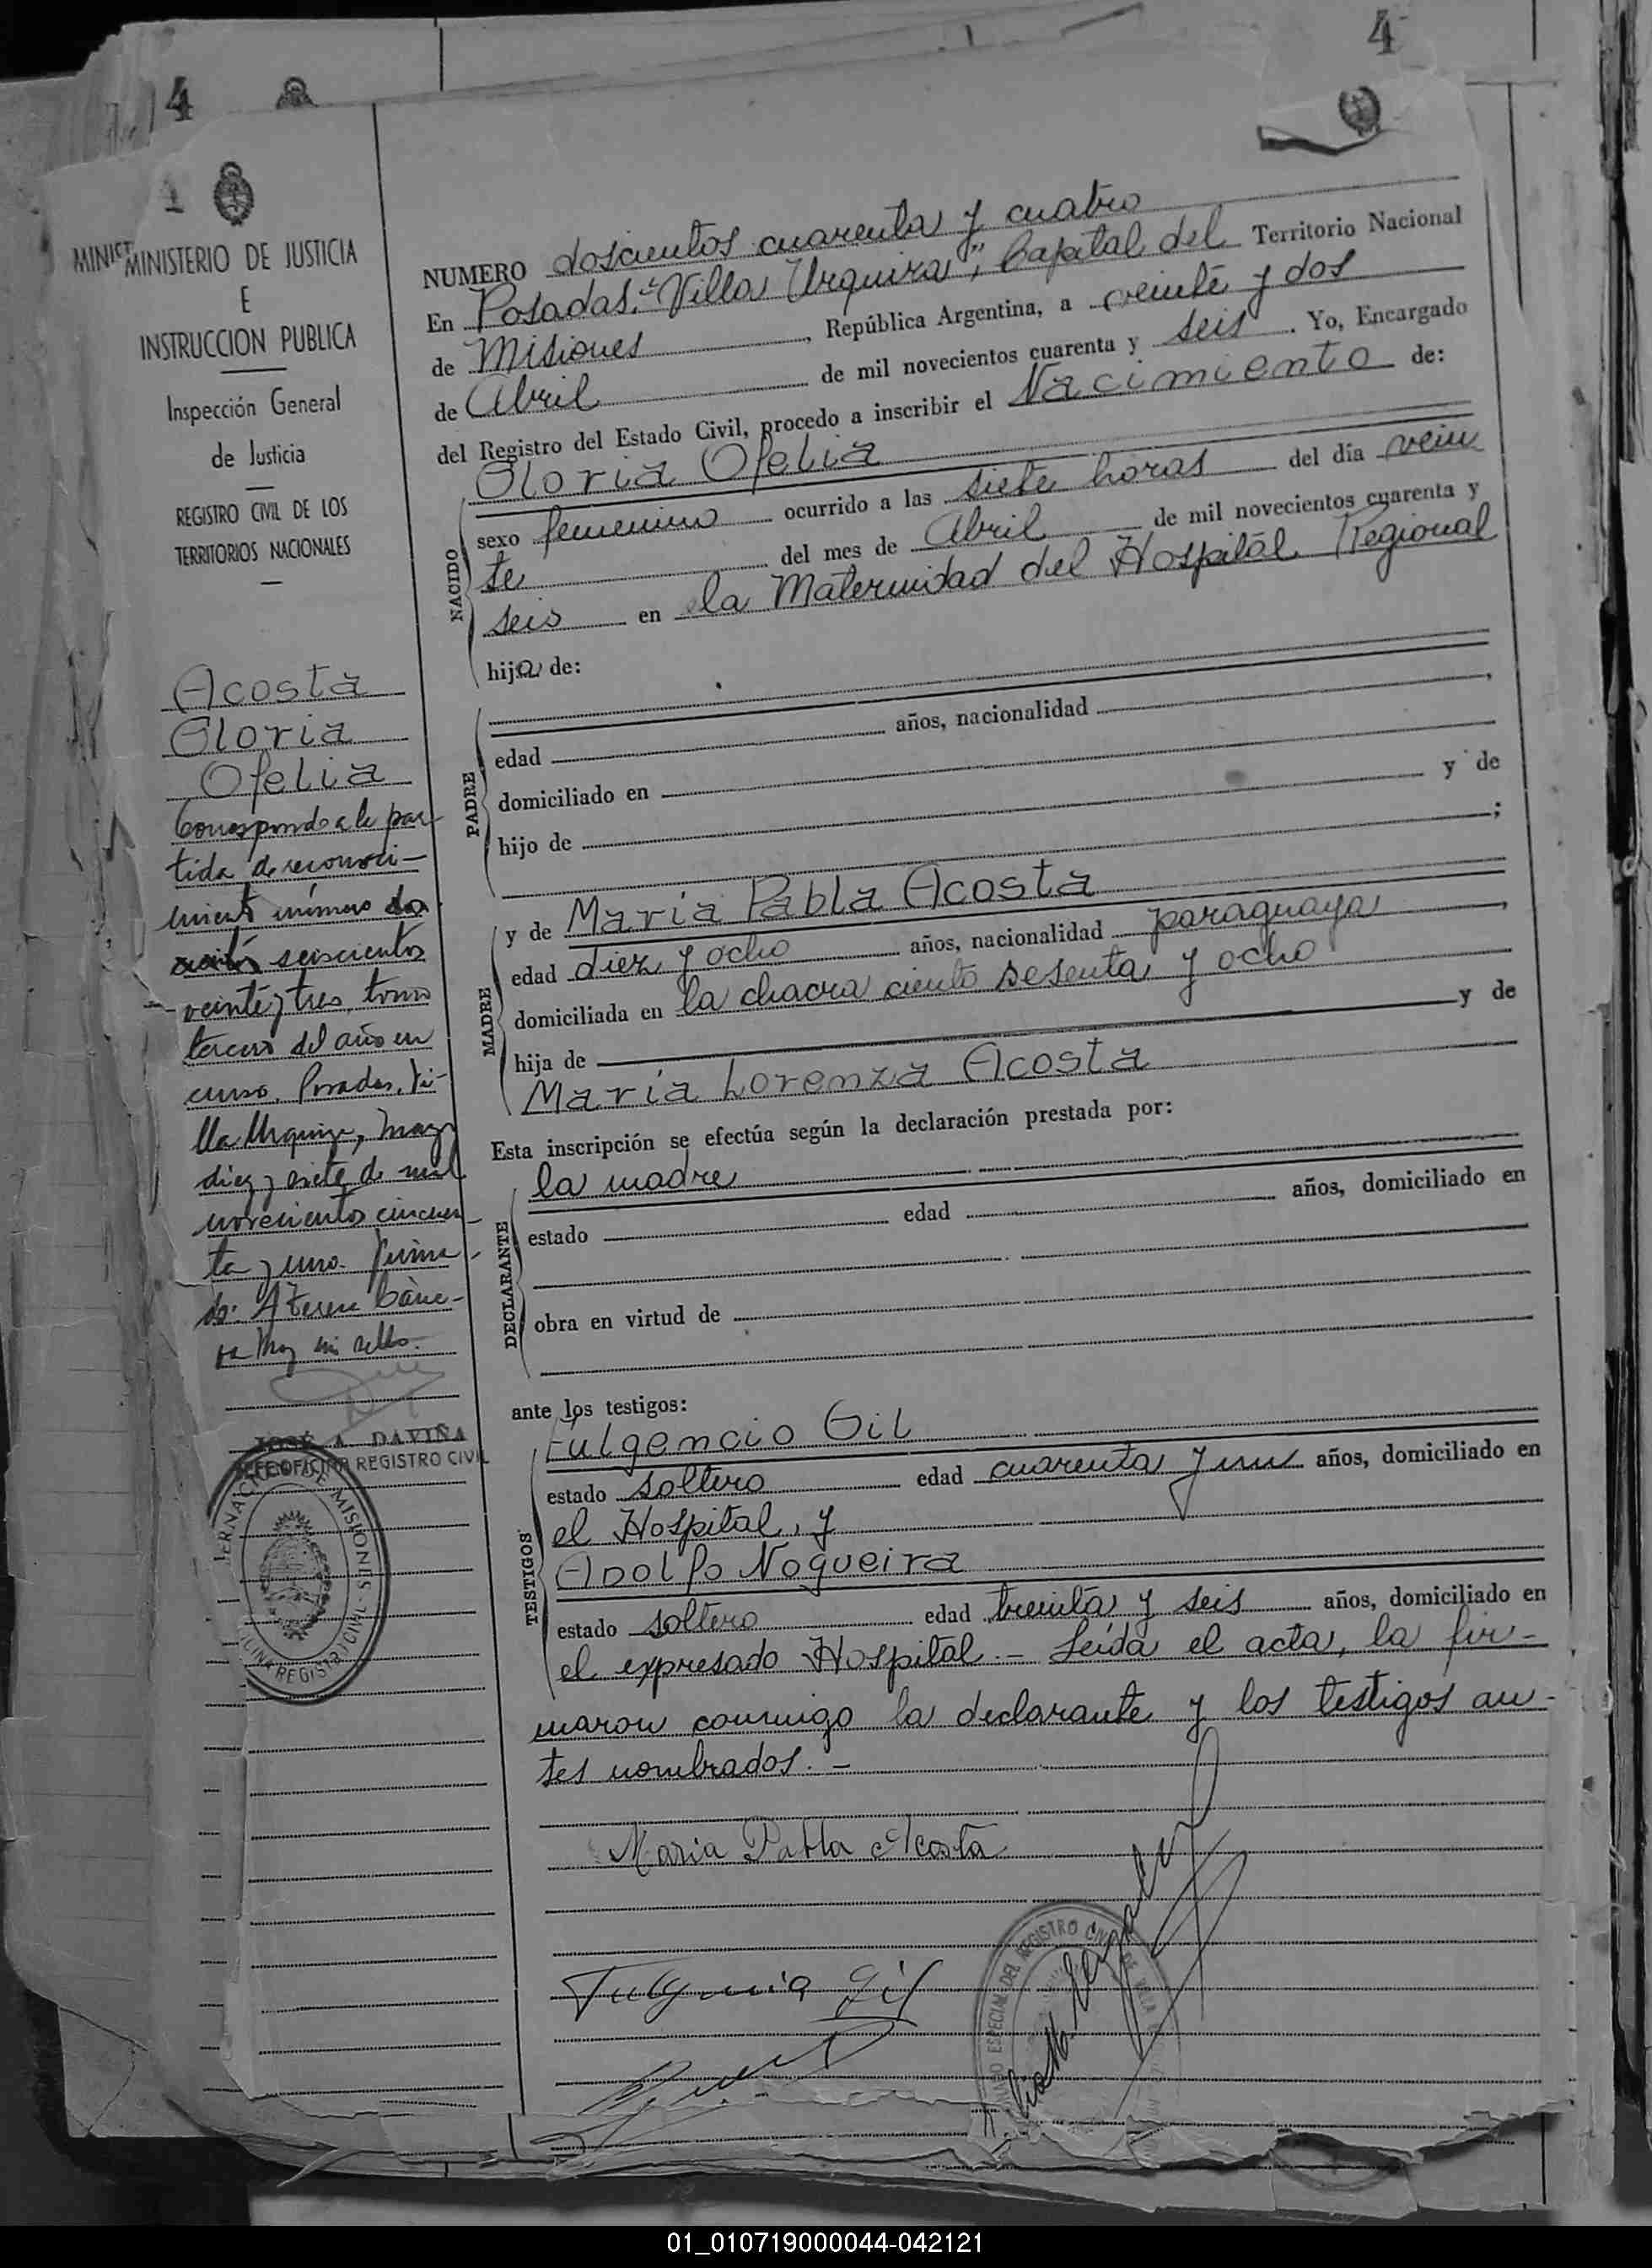 4
4
1
MINIST
MINISTERIO DE JUSTICIA
E
INSTRUCCION PUBLICA
Inspección General
de Justicia
REGISTRO CIVIL DE LOS
TERRITORIOS NACIONALES
Acosta
Gloria
Ofelia
Corresponde a la par-
tida de reconoci-
miento número dos
cientos seiscientos
veinte y tres, tomo
tercero del año en
curso. Posadas, Vi-
lla Urquiza, mayo
diez y siete de mil
novecientos cincuen-
ta y uno. Firma-
do:
Hay un sello.
JOSÉ A. DAVIÑA
JEFE OFICINA REGISTRO CIVIL
MISIONES
OFICINA REGISTRO CIVIL
NUMERO doscientos cuarenta y cuatro
En Posadas, "Villa Urquiza", Capital del Territorio Nacional
de Misiones, República Argentina, a veinte y dos
de Abril de mil novecientos cuarenta y seis. Yo, Encargado
del Registro del Estado Civil, procedo a inscribir el Nacimiento de:
NACIDO
Gloria Ofelia
sexo femenino ocurrido a las siete horas del día vein
te del mes de Abril de mil novecientos cuarenta y
seis en la Maternidad del Hospital Regional
hija de:
PADRE
edad años, nacionalidad ,
domiciliado en
hijo de y de
;
MADRE
y de María Pabla Acosta
edad diez y ocho años, nacionalidad paraguaya,
domiciliada en la chacra ciento sesenta y ocho
hija de y de
María Lorenza Acosta
Esta inscripción se efectúa según la declaración prestada por:
DECLARANTE
la madre
estado edad años, domiciliado en
obra en virtud de
ante los testigos:
TESTIGOS
Fulgencio Gil
estado soltero edad cuarenta y un años, domiciliado en
el Hospital, y
Adolfo Nogueira
estado soltero edad treinta y seis años, domiciliado en
el expresado Hospital. - Leída el acta, la fir-
maron conmigo la declarante y los testigos an-
tes nombrados. -
Maria Pabla Acosta
Fulgencio Gil
ESPECIAL DEL REGISTRO CIVIL
01_010719000044-042121